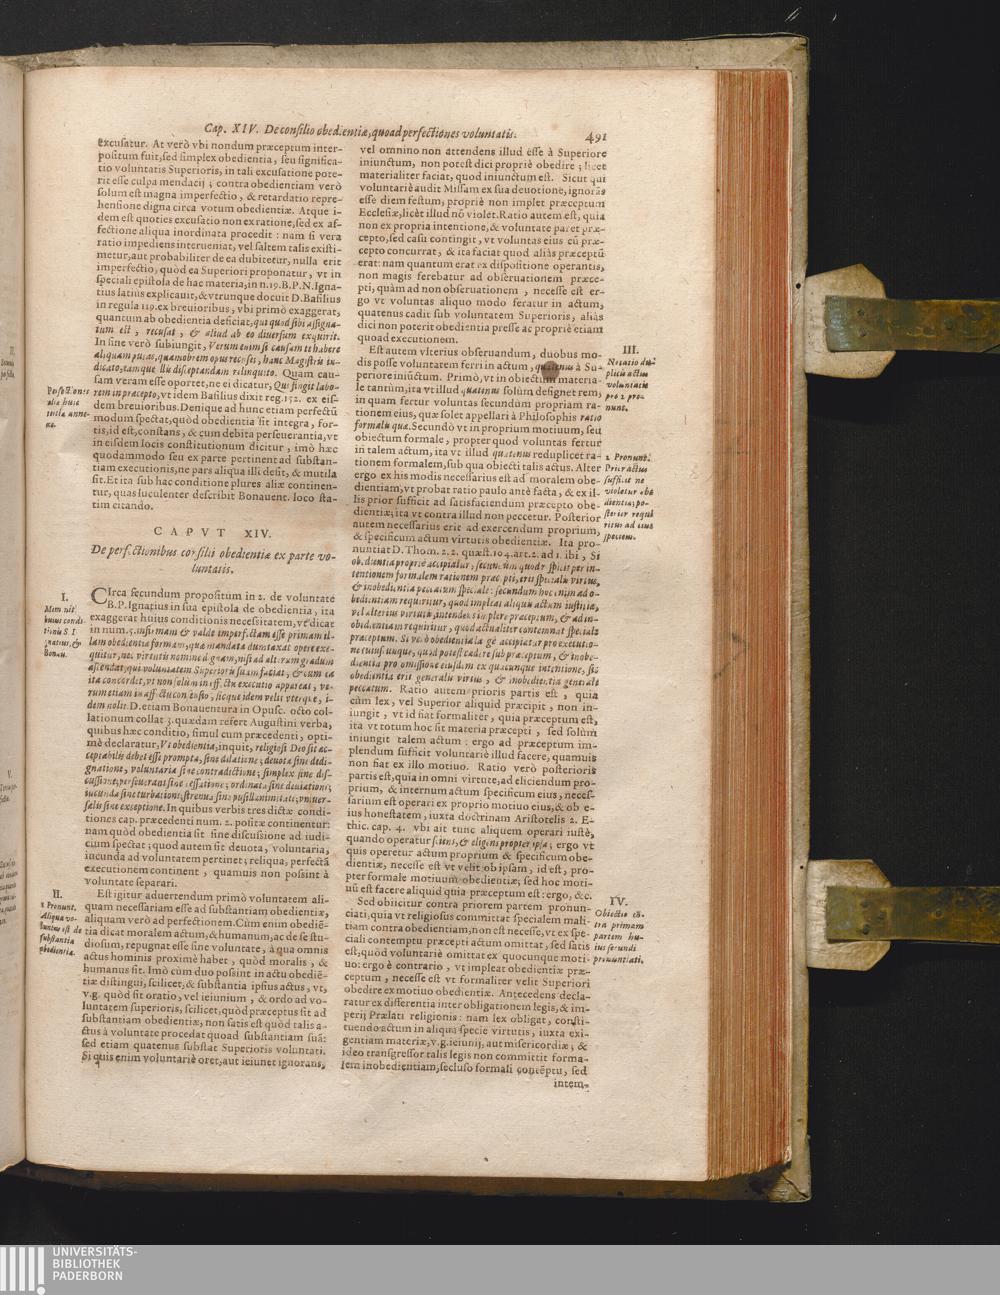 Cap. XIV. De consilio obedientiæ, quoad perfectiones voluntatis. 491
excusatur. At verò vbi nondum præceptum inter-
positum fuit, sed simplex obedientia, seu significa-
tio voluntatis Superioris, in tali excusatione pote-
rit esse culpa mendacij; contra obedientiam verò
solum est magna imperfectio, & retardatio repre-
hensione digna circa votum obedientiæ. Atque i-
dem est quoties excusatio non ex ratione, sed ex af-
fectione aliqua inordinata procedit: nam si vera
ratio impediens interueniat, vel saltem talis existi-
metur, aut probabiliter de ea dubitetur, nulla erit
imperfectio, quòd ea Superiori proponatur, vt in
speciali epistola de hac materia, in n. 19. B. P. N. Igna-
tius latiùs explicauit, & vtrunque docuit D. Basilius
in regula 119. ex breuioribus, vbi primò exaggerat,
quantum ab obedientia deficiat, qui quod sibi assigna-
tum est, recusat, & aliud ab eo diuersum exquirit.
In fine verò subiungit, Verum enim si causam te habere
aliquam putas, quamobrem opus recuses, hanc Magistris in-
dicato, eamque illis disceptandam relinquito. Quam cau-
sam veram esse oportet, ne ei dicatur, Qui fingit labo-
rem in præcepto, vt idem Basilius dixit reg. 152. ex eis-
dem breuioribus. Denique ad hunc etiam perfectū
modum spectat, quòd obedientia sit integra, for-
tis, id est, constans, & cum debita perseuerantia, vt
in eisdem locis constitutionum dicitur, imò hæc
quodammodo seu ex parte pertinent ad substan-
tiam executionis, ne pars aliqua illi desit, & mutila
sit. Et ita sub hac conditione plures aliæ continen-
tur, quas luculenter describit Bonauent. loco sta-
tim citando.
Perfectiones
aliæ huic
tertiæ anne-
xæ.
CAPVT XIV.
De perfectionibus consilii obedientiæ ex parte vo-
luntatis.
I.
Mentis
huius condi-
tionis S. I-
gnatius, &
Bonau.
CIrca secundum propositum in 2. de voluntate
B. P. Ignatius in sua epistola de obedientia, ita
exaggerat huius conditionis necessitatem, vt dicat
in num. 5. infirmam & valde imperfectam esse primam il-
lam obedientiæ formam, quæ mandata dumtaxat opere exe-
quitur, nec virtutis nomine dignam, nisi ad alterum gradum
ascendat, qui voluntatem Superioris suam faciat, & cum ea
ita concordet, vt non solum in effectu executio appareat, ve-
rum etiam in affectu consensio, sicque idem velit vterque, i-
dem nolit. D. etiam Bonauentura in Opusc. octo col-
lationum collat 3. quædam refert Augustini verba,
quibus hæc conditio, simul cum præcedenti, opti-
mè declaratur, Vt obedientia, inquit, religiosi Deo sit ac-
ceptabilis debet esse prompta, sine dilatione; deuota sine dedi-
gnatione, voluntaria sine contradictione; simplex sine dis-
cussione, perseuerans sine cessatione; ordinata sine deuiatione;
iucunda sine turbatione; strenua sine pusillanimitate; vniuer-
salis sine exceptione. In quibus verbis tres dictæ condi-
tiones cap. præcedenti num. 2. positæ continentur:
nam quòd obedientia sit sine discussione ad iudi-
cium spectat; quod autem sit deuota, voluntaria,
iucunda ad voluntatem pertinet; reliqua, perfectā
executionem continent, quamuis non possint à
voluntate separari.
II.
1 Pronunt.
Aliqua vo-
luntas est de
substantia
obedientiæ.
Est igitur aduertendum primò voluntatem ali-
quam necessariam esse ad substantiam obedientiæ,
aliquam verò ad perfectionem. Cùm enim obediē-
tia dicat moralem actum, & humanum, ac de se stu-
diosum, repugnat esse sine voluntate, à qua omnis
actus hominis proximè habet, quòd moralis, &
humanus sit. Imò cùm duo possint in actu obediē-
tiæ distingui, scilicet, & substantia ipsius actus, vt,
v.g. quòd sit oratio, vel ieiunium, & ordo ad vo-
luntatem superioris, scilicet, quòd præceptus sit ad
substantiam obedientiæ, non satis est quòd talis a-
ctus à voluntate procedat quoad substantiam suā:
sed etiam quatenus substat Superioris voluntati.
Si quis enim voluntariè oret, aut ieiunet ignorans,
vel omnino non attendens illud esse à Superiore
iniunctum, non potest dici propriè obedire; licet
materialiter faciat, quod iniunctum est. Sicut qui
voluntariè audit Missam ex sua deuotione, ignorās
esse diem festum, propriè non implet præceptum
Ecclesiæ, licèt illud nō violet. Ratio autem est, quia
non ex propria intentione, & voluntate paret præ-
cepto, sed casu contingit, vt voluntas eius cū præ-
cepto concurrat, & ita faciat quod aliàs præceptū
erat: nam quantum erat ex dispositione operantis,
non magis ferebatur ad obseruationem præce-
pti, quàm ad non obseruationem, necesse est er-
go vt voluntas aliquo modo feratur in actum,
quatenus cadit sub voluntatem Superioris, aliàs
dici non poterit obedientia presse ac propriè etiam
quoad executionem.
III.
Notatio du-
plicis actus
voluntatis
pro 2 pro-
nunt.
Est autem vlterius obseruandum, duobus mo-
dis posse voluntatem ferri in actum, quatenus à Su-
periore iniūctum. Primò, vt in obiectum materia-
le tantùm, ita vt illud quatenus solùm designet rem,
in quam fertur voluntas secundùm propriam ra-
tionem eius, quæ solet appellari à Philosophis ratio
formalis quæ. Secundò vt in proprium motiuum, seu
obiectum formale, propter quod voluntas fertur
in talem actum, ita vt illud quatenus reduplicet ra-
tionem formalem, sub qua obiecti talis actus. Alter
ergo ex his modis necessarius est ad moralem obe-
dientiam, vt probat ratio paulo antè facta, & ex il-
lis prior sufficit ad satisfaciendum præcepto obe-
dientiæ; ita vt contra illud non peccetur. Posterior
autem necessarius erit ad exercendum proprium,
& specificum actum virtutis obedientiæ. Ita pro-
nuntiat D. Thom. 2. 2. quæst. 104. art. 2. ad 1. ibi, Si
obedientia propriè accipiatur, secundum quod respicit per in-
tentionem formalem rationem præcepti, erit specialis virtus,
& inobedientia peccatum speciale: secundum hoc enim ad o-
bedientiam requiritur, quod impleat aliquis actum iustitiæ,
vel alterius virtutis, intendens implere præceptum, & ad in-
obedientiam requiritur, quod actualiter contemnat speciale
præceptum. Si verò obedientia largè accipiatur pro executio-
ne cuiuscunque, quod potest cadere sub præceptum, & inobe-
dientia pro omissione eiusdem ex quacunque intentione, sic
obedientia erit generalis virtus, & inobedientia generale
peccatum. Ratio autem prioris partis est, quia
cùm lex, vel Superior aliquid præcipit, non in-
iungit, vt id fiat formaliter, quia præceptum est,
ita vt totum hoc sit materia præcepti, sed solùm
iniungit talem actum: ergo ad præceptum im-
plendum sufficit voluntariè illud facere, quamuis
non fiat ex illo motiuo. Ratio verò posterioris
partis est, quia in omni virtute, ad eliciendum pro-
prium, & internum actum specificum eius, neces-
sarium est operari ex proprio motiuo eius, & ob e-
ius honestatem, iuxta doctrinam Aristotelis 2. E-
thic. cap. 4. vbi ait tunc aliquem operari iustè,
quando operatur sciens, & eligens propter ipsa; ergo vt
quis operetur actum proprium & specificum obe-
dientiæ, necesse est vt velit ob ipsam, id est, pro-
pter formale motiuum obedientiæ; sed hoc moti-
uū est facere aliquid quia præceptum est: ergo, &c.
2 Pronunt.
Prior actus
sufficit ne
violetur obe
dientia; po-
sterior requi
ritur ad eius
speciem.
IV.
Obiectio cō-
tra primam
partem hu-
ius secundi
pronuntiati.
Sed obiicitur contra priorem partem pronun-
ciati, quia vt religiosus committat specialem mali-
tiam contra obedientiam, non est necesse, vt ex spe-
ciali contemptu præcepti actum omittat, sed satis
est, quòd voluntariè omittat ex quocunque moti-
uo: ergo è contrario, vt impleat obedientiæ præ-
ceptum, necesse est vt formaliter velit Superiori
obedire ex motiuo obedientiæ. Antecedens decla-
ratur ex differentia inter obligationem legis, & im-
perij Prælati religionis: nam lex obligat, consti-
tuendo actum in aliqua specie virtutis, iuxta exi-
gentiam materiæ, v.g. ieiunij, aut misericordiæ; &
ideo transgressor talis legis non committit forma-
lem inobedientiam, secluso formali contēptu, sed
intem-
UNIVERSITÄTS-
BIBLIOTHEK
PADERBORN